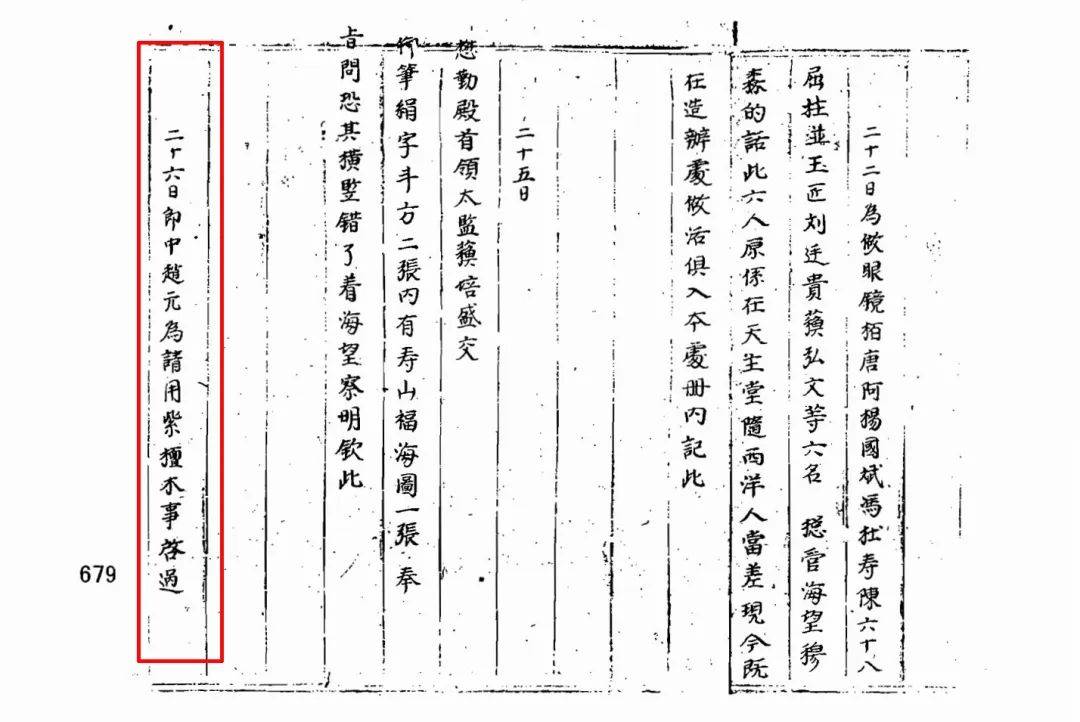 二十二日為做眼镜栢唐阿楊國斌馮狂寿陳六十八
屈拄並玉匠刘廷貴蘓弘文等六名 捴管海望穆
森的話此六人原係在天生堂隨西洋人當差現今既
在造辦處做活俱入夲處册内記此
二十五日
懋勤殿首領太監蘓培盛交
御筆絹字斗方二張内有寿山福海圖一張奉
旨問恐其横竪错了着海望察明钦此
二十六日郎中趙元為諸用紫檀木事啓過
679